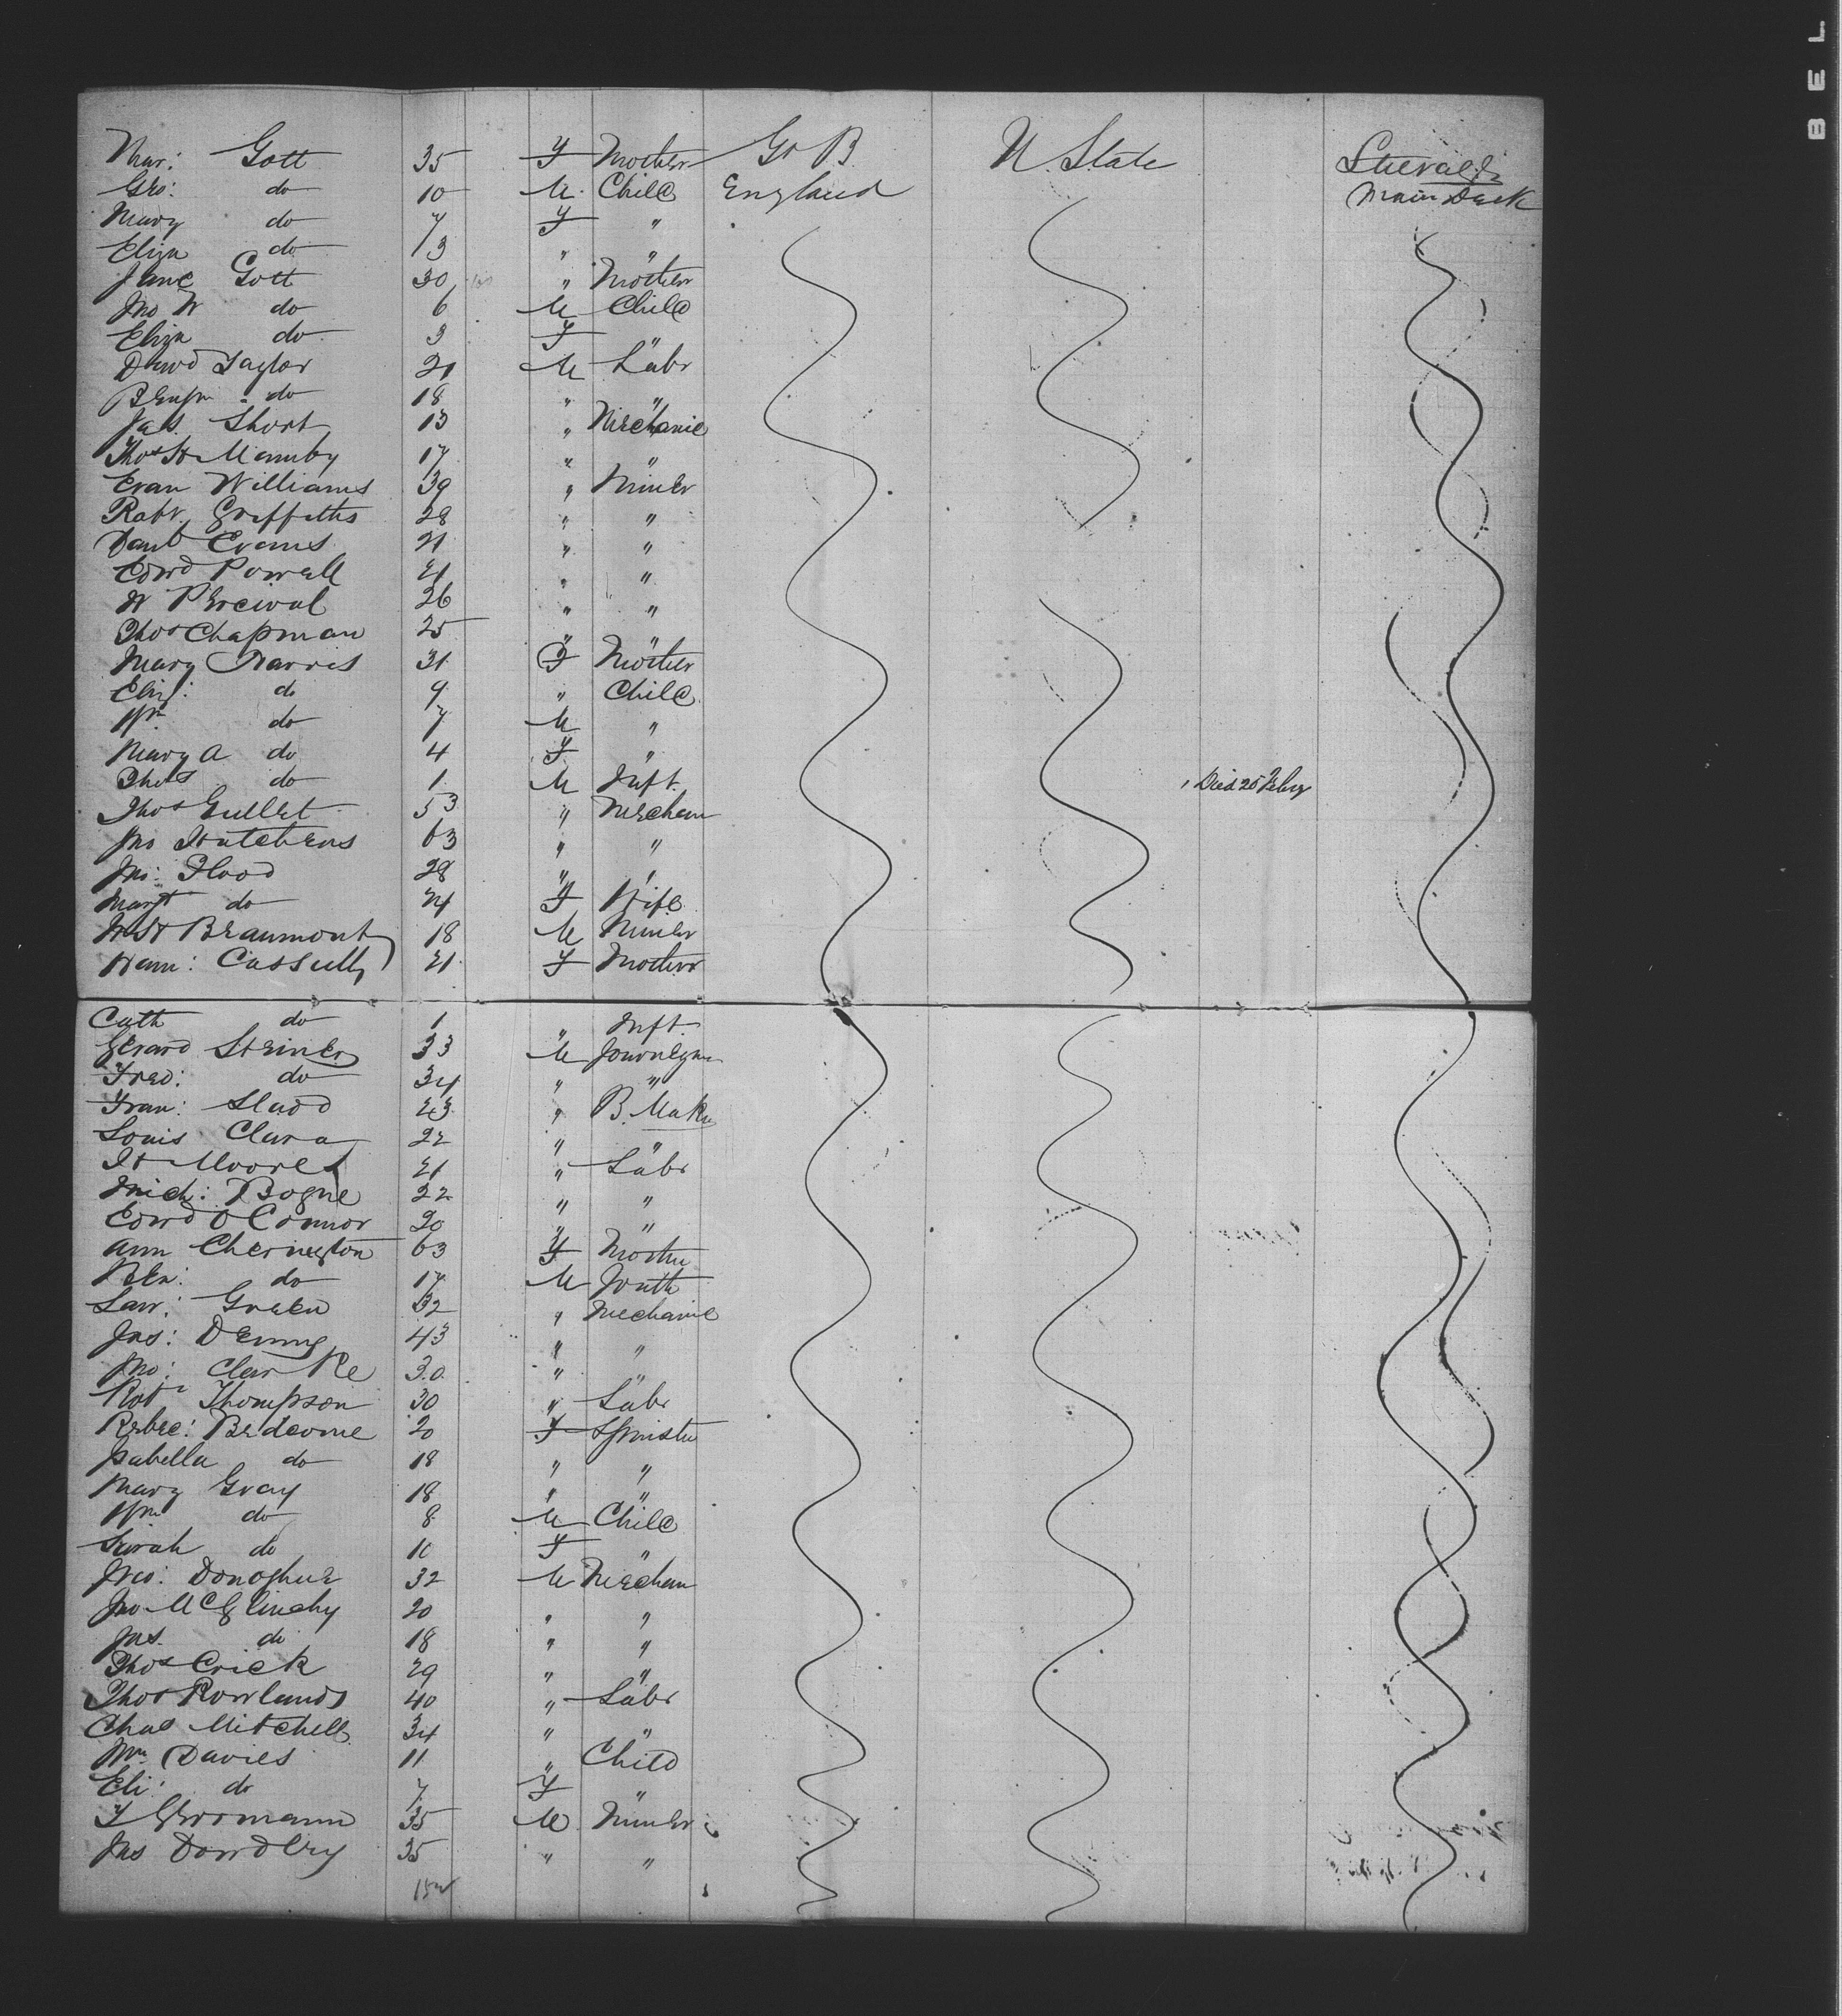 Mar: Gott 35 F Mother Gt B U State
Geo: do 10 M Child England Main Deck
Mary do 7 F "
Eliza do 3 " "
Jane Gott 30 " Mother
Jno W do 6 M Child
Eliza do 3 F "
David Taylor 21 M Labr
Benjn do 18 " "
Jas. Short 13 " Mechanic
Thos H Mannby 17 " "
Evan Williams 39 " Miner
Robt. Griffiths 28 " "
Danl Evans 21 " "
Edwd Powell 21 " "
W Percival 26 " "
Thos Chapman 25 " "
Mary Harris 31 F Mother
Eliz: do 9 " Child
Wm do 7 M "
Mary A do 4 F "
Thos do 1 M Inft. Died 25 Feby
Thos Gullet 53 " Mechan
Jno Hutchens 63 " "
Jno: Flood 28 " "
Margt do 24 F Wife
W H Beaumont 18 M Miner
Ham: Cassully 21 F Mother
Cath do 1 " Inft.
Gerard Steiner 33 M Journeyman
Fred: do 34 " "
Fran: Sladd 23 " B. Maker
Louis Clara 22 " "
H Moores 21 " Labr
Mich: Bogue 22 " "
Edwd O Connor 20 " "
Ann Cherington 63 F Mother
Ben: do 17 M Youth
Law: Green 32 " Mechanic
Jas: Denny 43 " "
Jno: Clarke 30 " "
Robt Thompson 30 " Labr
Rebec: Bedcome 20 F Spinster
Isabella do 18 " "
Mary Gray 18 " "
Wm do 8 M Child
Sarah do 10 F "
Jno: Donoghue 32 M Mechan
Jno McGlinchy 20 " "
Jas. do 18 " "
Thos Crick 29 " "
Thos Rowlands 40 " Labr
Chas Mitchell 34 " "
Wm Davies 11 " Child
Eli: do 7 F "
35 M Miner
Jas Dowdley 35 " "